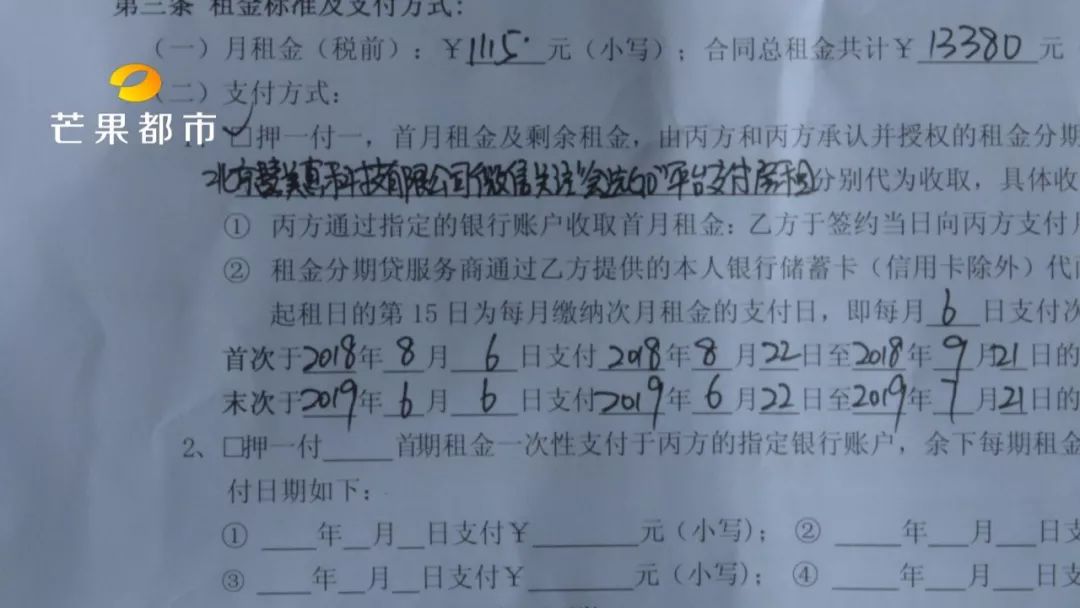 第三条 租金标准及支付方式:
(一)月租金(税前):¥1115元(小写);合同总租金共计¥13380元
(二)支付方式:
芒果都市
1、□押一付一,首月租金及剩余租金,由丙方和丙方承认并授权的租金分期
北京 科技有限公司(微信关注"会选GO"平台支付房租分别代为收取,具体收
① 丙方通过指定的银行账户收取首月租金:乙方于签约当日向丙方支付
② 租金分期贷服务商通过乙方提供的本人银行储蓄卡(信用卡除外)代
起租日的第15日为每月缴纳次月租金的支付日,即每月6日支付次
首次于2018年8月6日支付2018年8月22日至2018年9月21日的
末次于2019年6月6日支付2019年6月22日至2019年7月21日的
2、□押一付____首期租金一次性支付于丙方的指定银行账户,余下每期租金
付日期如下:
① ___年__月__日支付¥________元(小写); ② ____年___月___日支
③ ___年__月__日支付¥________元(小写); ④ ____年___月___日支